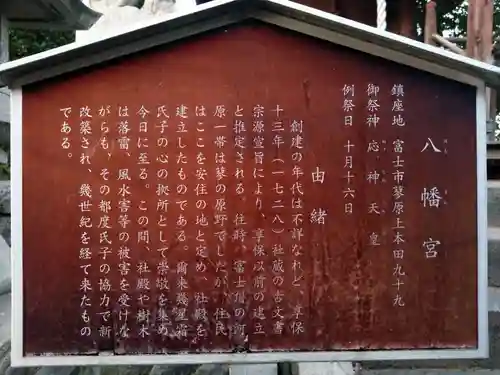 八幡宮
鎮座地　富士市蓼原上本田九十九
御祭神　応神天皇
例祭日　十月十六日
由緒
創建の年代は不詳なれど、享保
十三年（一七二八）社蔵の古文書
宗源宣旨により、享保以前の建立
と推定される。往時、富士川の河
原一帯は蓼の原野でしたが、住民
はここを安住の地と定め、社殿を
建立したものである。爾来幾星霜
氏子の心の拠所として崇敬を集め
今日に至る。この間、社殿や樹木
は落雷、風水害等の被害を受けな
がらも、その都度氏子の協力で新
改築され、幾世紀を経て来たもの
である。